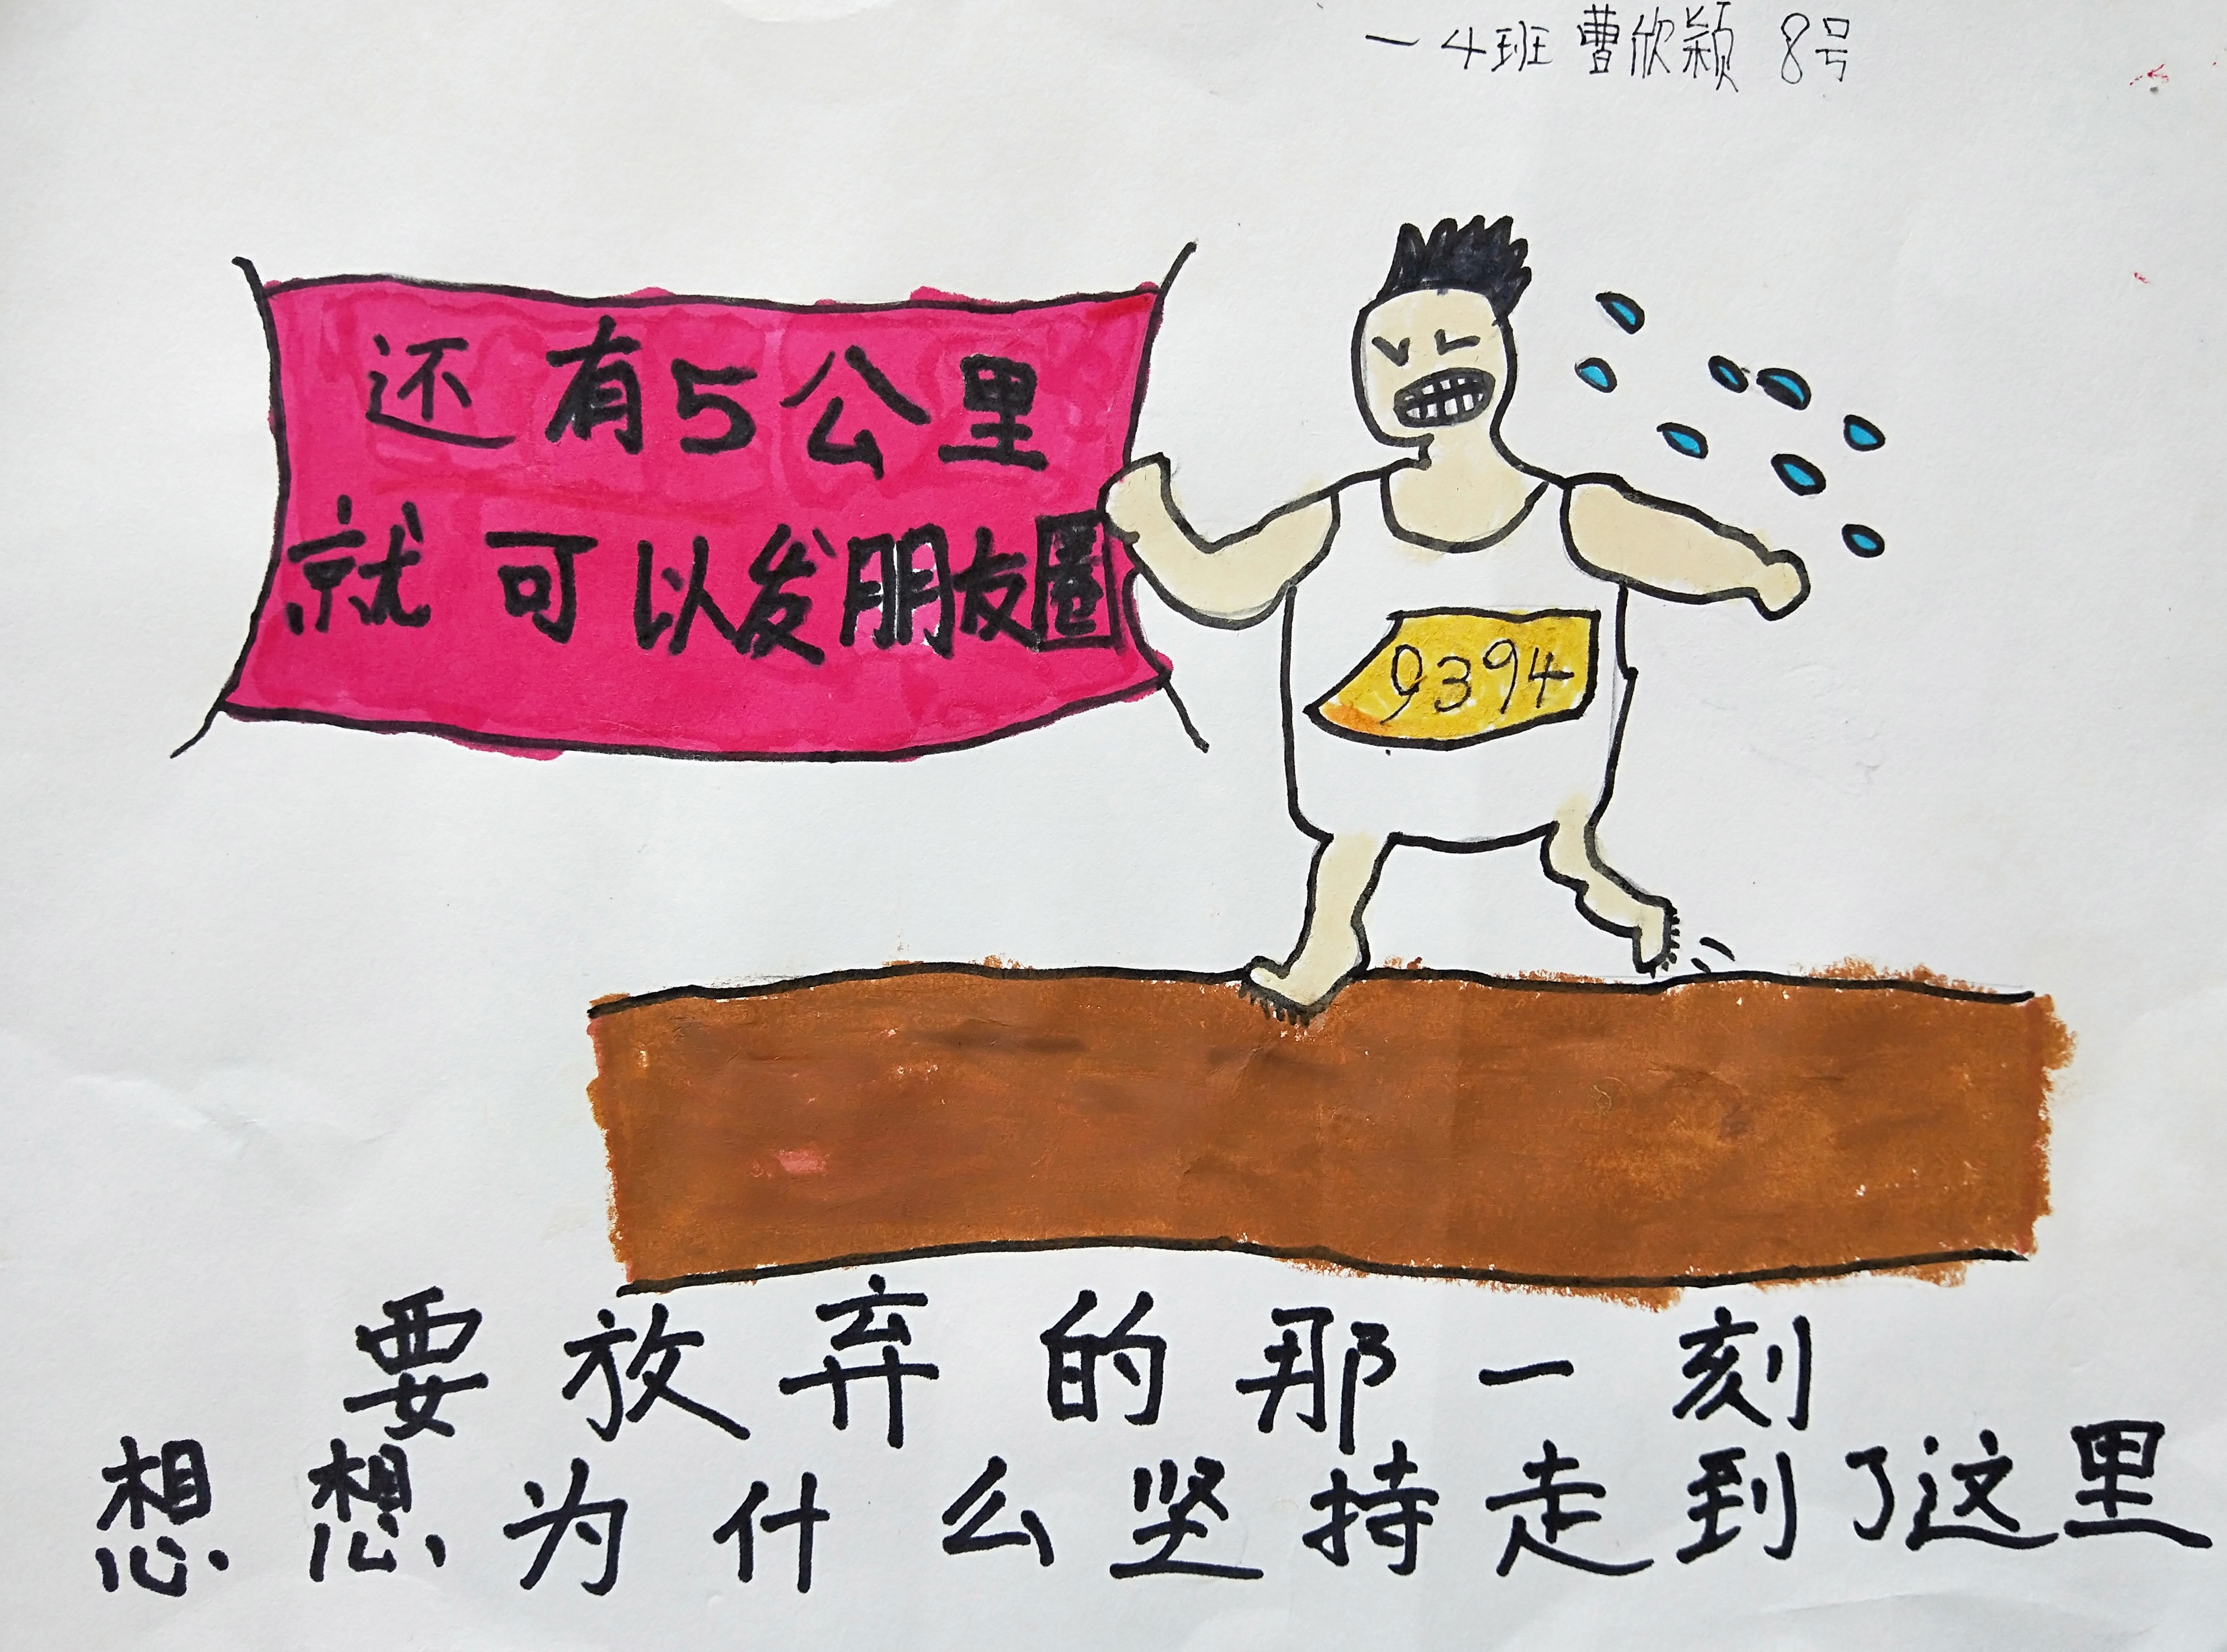 一4班 曹欣颖 8号
还有5公里
就可以发朋友圈
9394
要放弃的那一刻
想想为什么坚持走到了这里